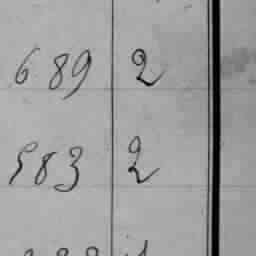 689 2
583 2